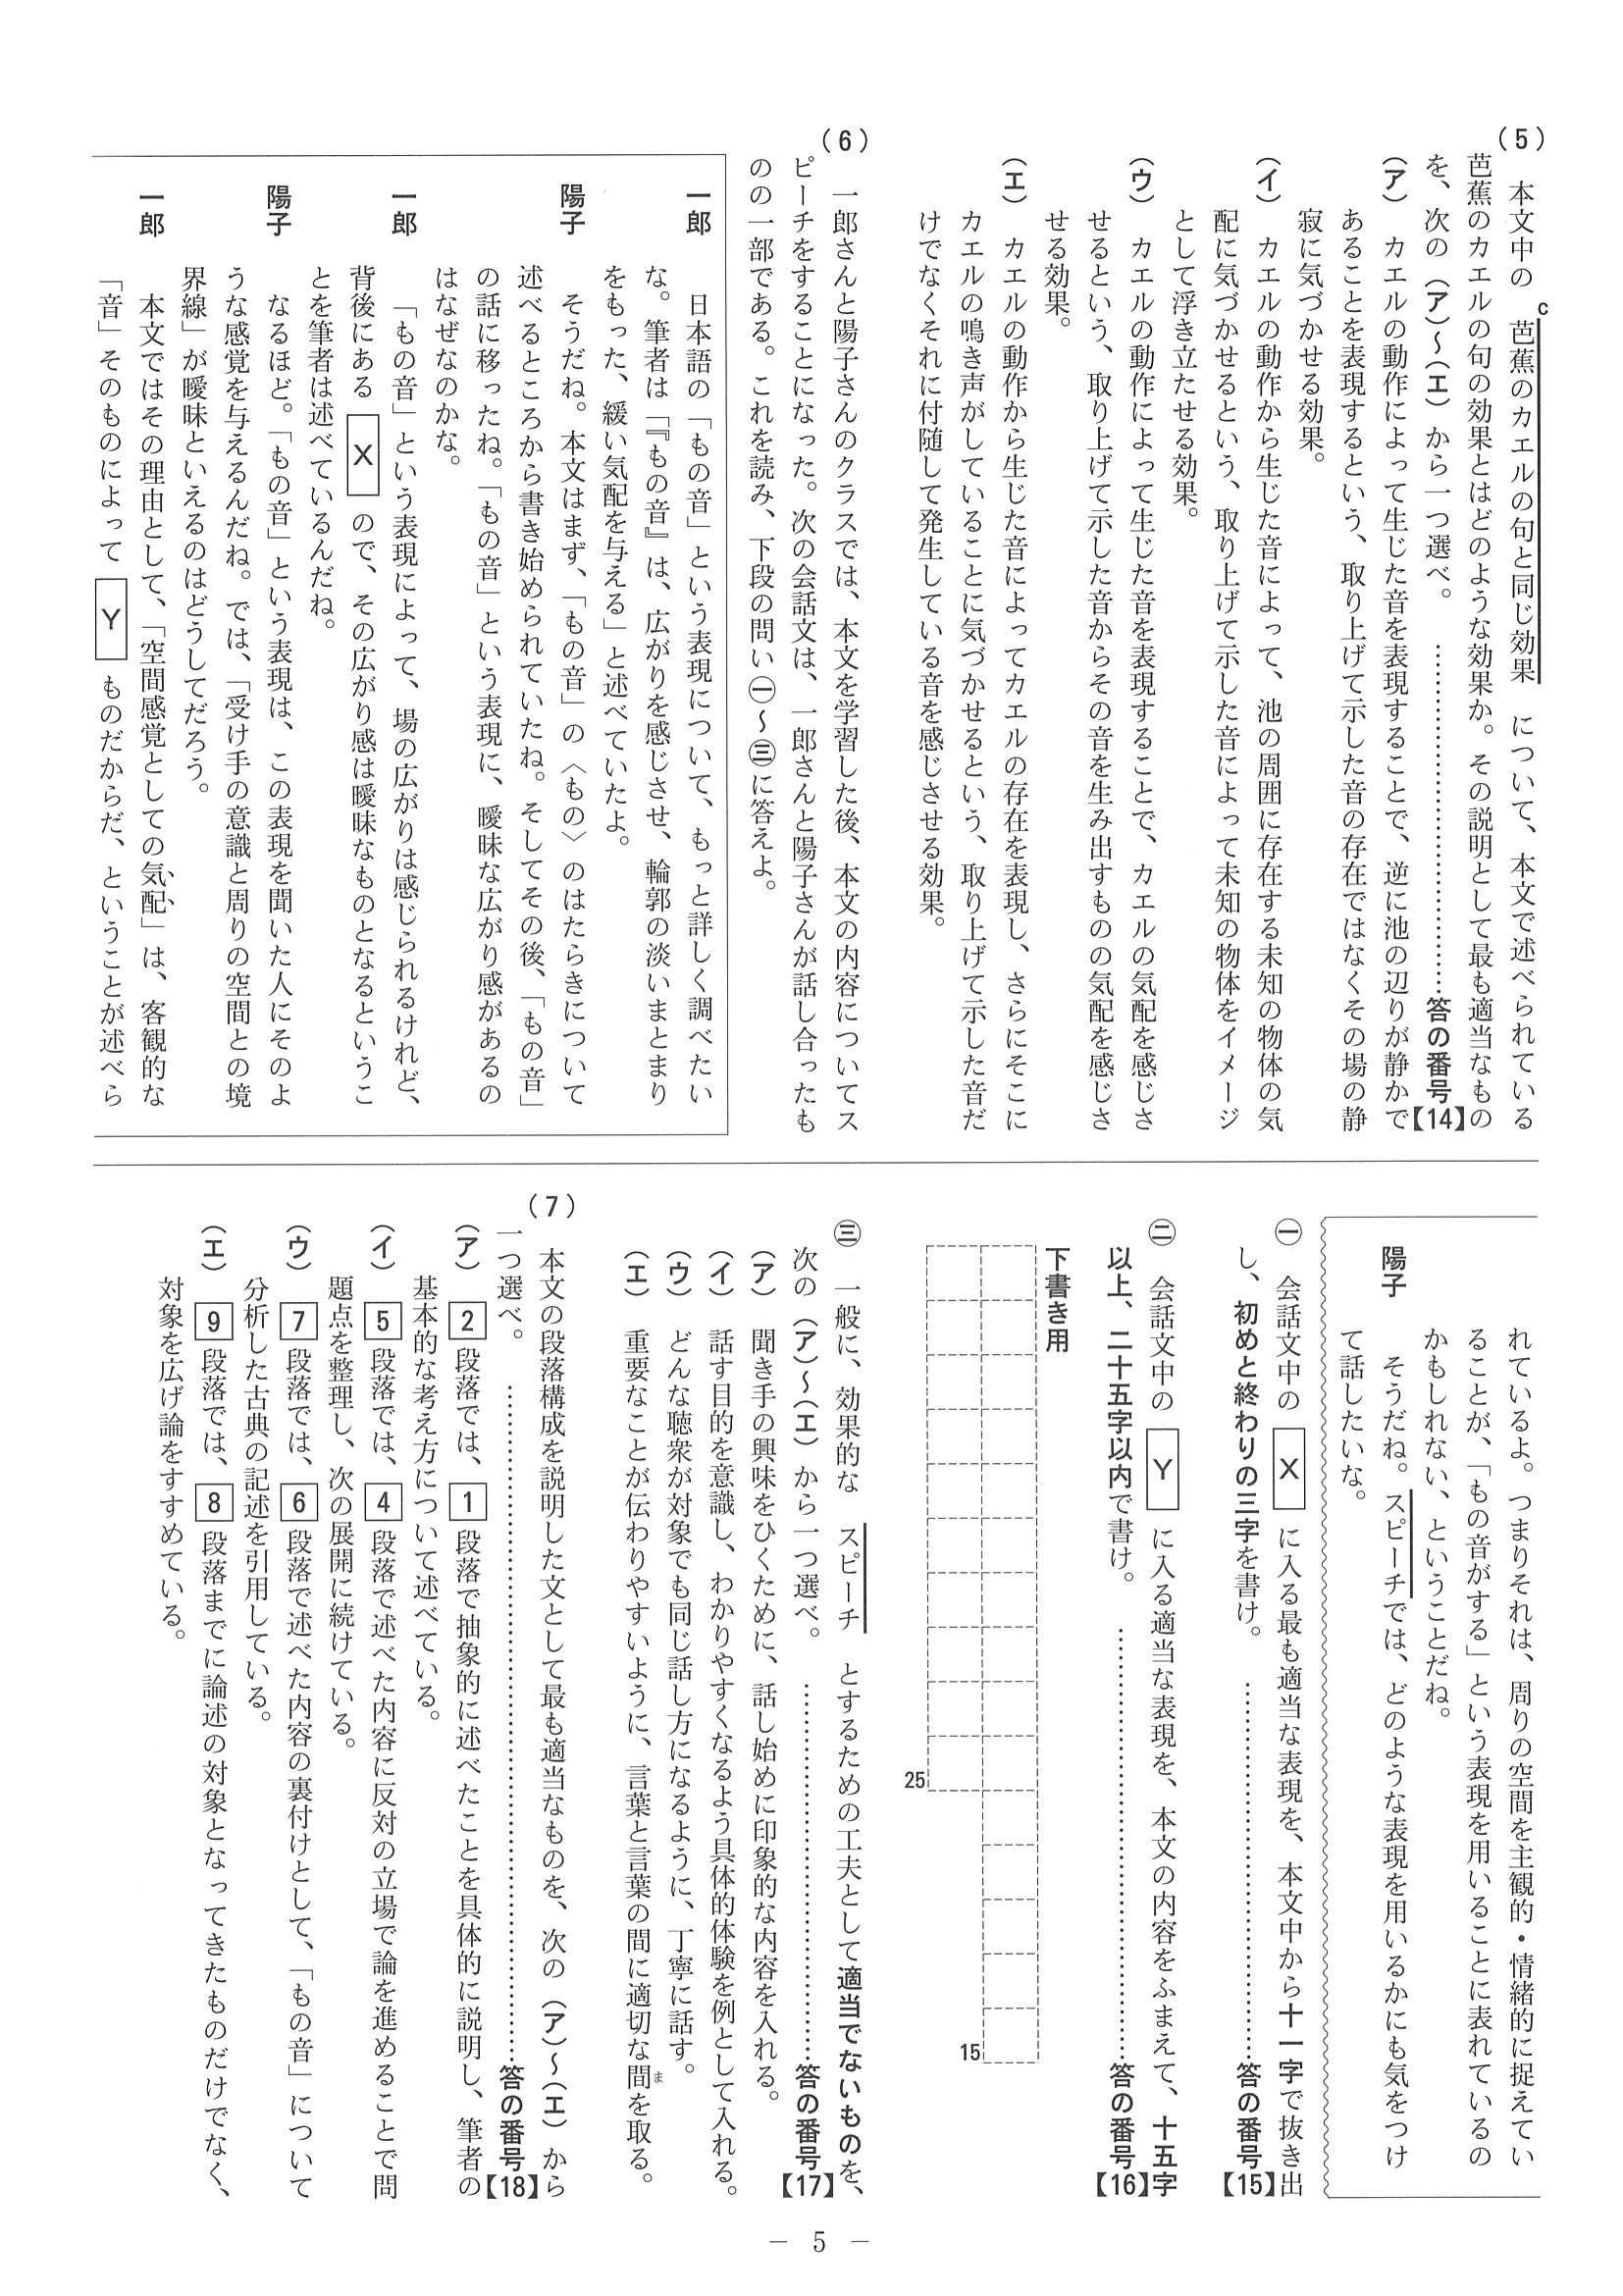 (5)　本文中の　芭蕉のカエルの句と同じ効果　について、本文で述べられている
c
芭蕉のカエルの句の効果とはどのような効果か。その説明として最も適当なもの
を、次の(ア)～(エ)から一つ選べ。……………………………答の番号【14】
(ア)　カエルの動作によって生じた音を表現することで、逆に池の辺りが静かで
あることを表現するという、取り上げて示した音の存在ではなくその場の静
寂に気づかせる効果。
(イ)　カエルの動作から生じた音によって、池の周囲に存在する未知の物体の気
配に気づかせるという、取り上げて示した音によって未知の物体をイメージ
として浮き立たせる効果。
(ウ)　カエルの動作によって生じた音を表現することで、カエルの気配を感じさ
せるという、取り上げて示した音からその音を生み出すものの気配を感じさ
せる効果。
(エ)　カエルの動作から生じた音によってカエルの存在を表現し、さらにそこに
カエルの鳴き声がしていることに気づかせるという、取り上げて示した音だ
けでなくそれに付随して発生している音を感じさせる効果。
(6)　一郎さんと陽子さんのクラスでは、本文を学習した後、本文の内容についてス
ピーチをすることになった。次の会話文は、一郎さんと陽子さんが話し合ったも
のの一部である。これを読み、下段の問い㊀～㊂に答えよ。
一郎　日本語の「もの音」という表現について、もっと詳しく調べたい
な。筆者は「『もの音』は、広がりを感じさせ、輪郭の淡いまとまり
をもった、緩い気配を与える」と述べていたよ。
陽子　そうだね。本文はまず、「もの音」の〈もの〉のはたらきについて
述べるところから書き始められていたね。そしてその後、「もの音」
の話に移ったね。「もの音」という表現に、曖昧な広がり感があるの
はなぜなのかな。
一郎　「もの音」という表現によって、場の広がりは感じられるけれど、
背後にある　X　ので、その広がり感は曖昧なものとなるというこ
とを筆者は述べているんだね。
陽子　なるほど。「もの音」という表現は、この表現を聞いた人にそのよ
うな感覚を与えるんだね。では、「受け手の意識と周りの空間との境
界線」が曖昧といえるのはどうしてだろう。
一郎　本文ではその理由として、「空間感覚としての気配」は、客観的な
「音」そのものによって　Y　ものだからだ、ということが述べら
れているよ。つまりそれは、周りの空間を主観的・情緒的に捉えてい
ることが、「もの音がする」という表現を用いることに表れているの
かもしれない、ということだね。
陽子　そうだね。スピーチでは、どのような表現を用いるかにも気をつけ
て話したいな。
㊀　会話文中の　X　に入る最も適当な表現を、本文中から十一字で抜き出
し、初めと終わりの三字を書け。……………………………答の番号【15】
㊁　会話文中の　Y　に入る適当な表現を、本文の内容をふまえて、十五字
以上、二十五字以内で書け。……………………………答の番号【16】
下書き用
15
25
㊂　一般に、効果的な　スピーチ　とするための工夫として適当でないものを、
次の(ア)～(エ)から一つ選べ。……………………………答の番号【17】
(ア)　聞き手の興味をひくために、話し始めに印象的な内容を入れる。
(イ)　話す目的を意識し、わかりやすくなるよう具体的体験を例として入れる。
(ウ)　どんな聴衆が対象でも同じ話し方になるように、丁寧に話す。
(エ)　重要なことが伝わりやすいように、言葉と言葉の間に適切な間を取る。
ま
(7)　本文の段落構成を説明した文として最も適当なものを、次の(ア)～(エ)から
一つ選べ。……………………………答の番号【18】
(ア)　2　段落では、1　段落で抽象的に述べたことを具体的に説明し、筆者の
基本的な考え方について述べている。
(イ)　5　段落では、4　段落で述べた内容に反対の立場で論を進めることで問
題点を整理し、次の展開に続けている。
(ウ)　7　段落では、6　段落で述べた内容の裏付けとして、「もの音」について
分析した古典の記述を引用している。
(エ)　9　段落では、8　段落までに論述の対象となってきたものだけでなく、
対象を広げ論をすすめている。
－ 5 －